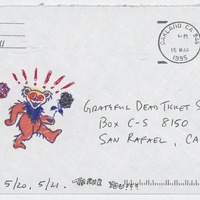 OAKLAND CA 946
PM
15 MAR
1995
GRATEFUL DEAD TICKET S
BOX C-S 8150
SAN RAFAEL, CA
5/20, 5/21.